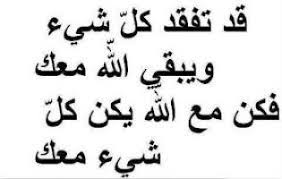 قد تفقد كلّ شيء
ويبقي الله معك
فكن مع الله يكن كلّ
شيء معك